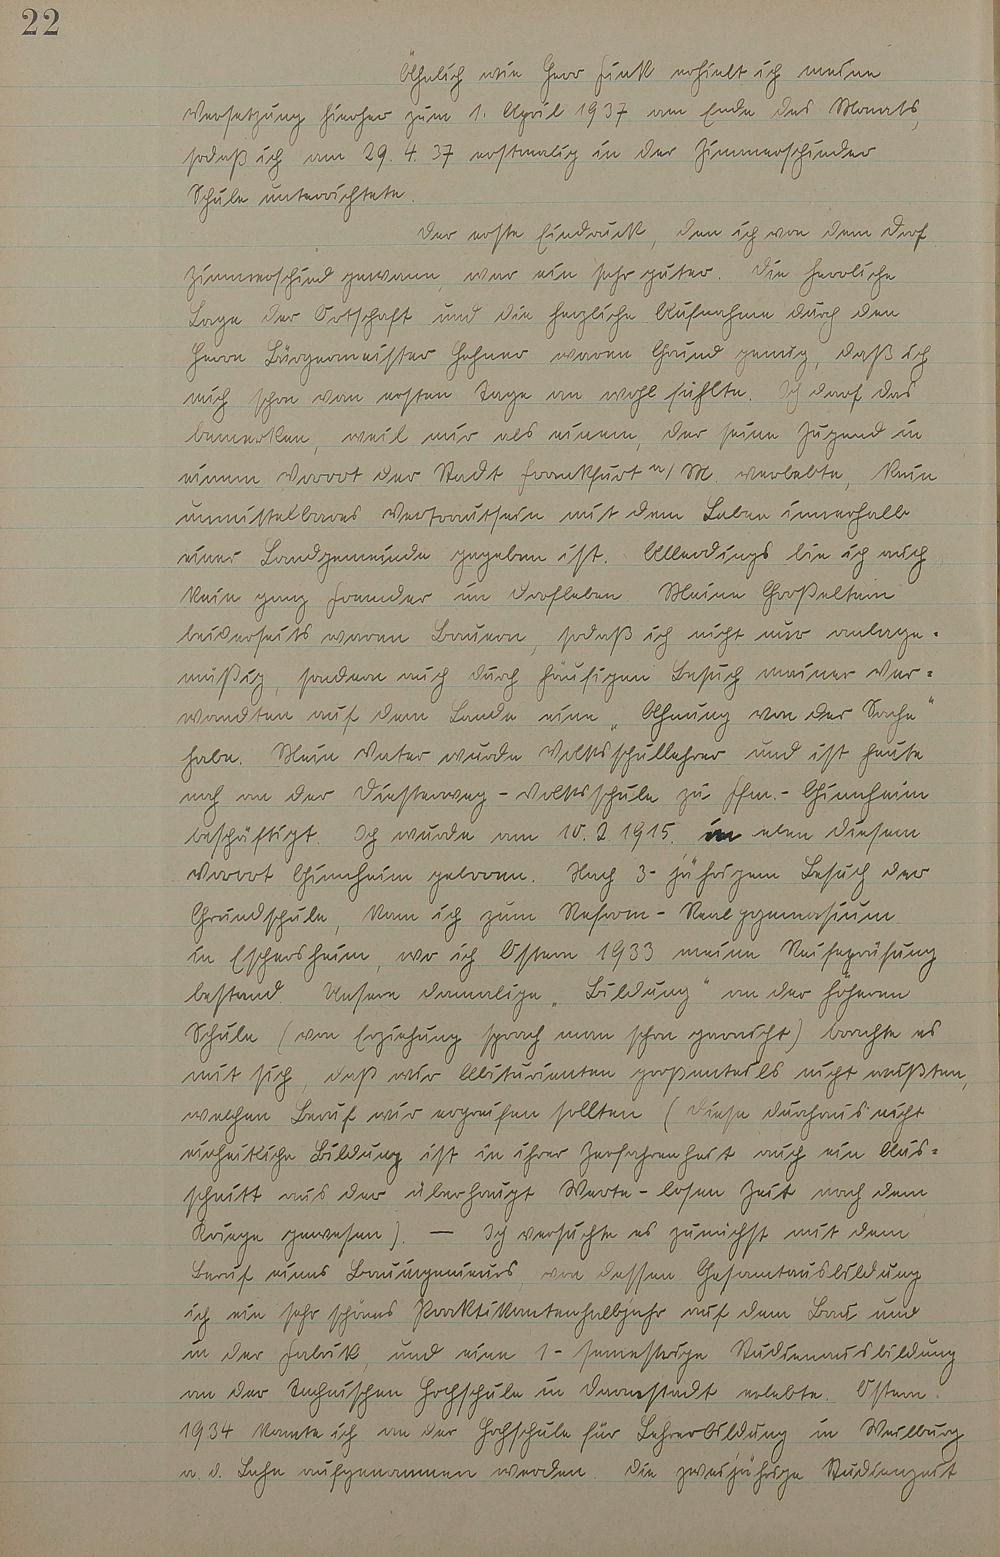 22
Ähnlich wie Herr Fink erhielt ich meine
Versetzung hierher zum 1. April 1937 am Ende des Monats,
sodaß ich am 29. 4. 37 erstmalig in der Zimmerschieder
Schule unterrichtete.
Der erste Eindruck, den ich von dem Dorf
Zimmerschied gewann, war ein sehr guter. Die herrliche
Lage der Ortschaft und die herzliche Aufnahme durch den
Herrn Bürgermeister Hehner waren Grund genug, daß ich
mich schon vom ersten Tage an wohl fühlte. Ich darf das
bemerken, weil mir als einem, der seine Jugend in
einem Vorort der Stadt Frankfurt a/M. verlebte, kein
unmittelbares Vertrautsein mit dem Leben innerhalb
einer Landgemeinde gegeben ist. Allerdings bin ich auch
kein ganz Fremder im Dorfleben. Meine Großeltern
beiderseits waren Bauern, sodaß ich nicht nur anlage-
mäßig, sondern auch durch häufigen Besuch meiner Ver-
wandten auf dem Lande eine „Ahnung von der Sache“
habe. Mein Vater wurde Volksschullehrer und ist heute
noch an der Diesterweg-Volksschule zu Ffm.-Ginnheim
beschäftigt. Ich wurde am 10. 2. 1915. in eben diesem
Vorort Ginnheim geboren. Nach 3-jährigem Besuch der
Grundschule, kam ich zum Reform-Realgymnasium
in Eschersheim, wo ich Ostern 1933 meine Reifeprüfung
bestand. Unsere damalige „Bildung“ an der höheren
Schule (von Erziehung sprach man schon garnicht) brachte es
mit sich, daß wir Abiturienten großenteils nicht wußten,
welchen Beruf wir ergreifen sollten (diese durchaus nicht
einheitliche Bildung ist in ihrer Zerfahrenheit auch ein Aus-
schnitt aus der überhaupt Werte-losen Zeit nach dem
Kriege gewesen). — Ich versuchte es zunächst mit dem
Beruf eines Bauingenieurs, von dessen Gesamtausbildung
ich ein sehr schönes Praktikantenhalbjahr auf dem Bau und
in der Fabrik, und eine 1-semestrige Studienausbildung
an der Technischen Hochschule in Darmstadt erlebte. Ostern
1934 konnte ich an der Hochschule für Lehrerbildung in Weilburg
a. d. Lahn aufgenommen werden. Die zweijährige Studienzeit